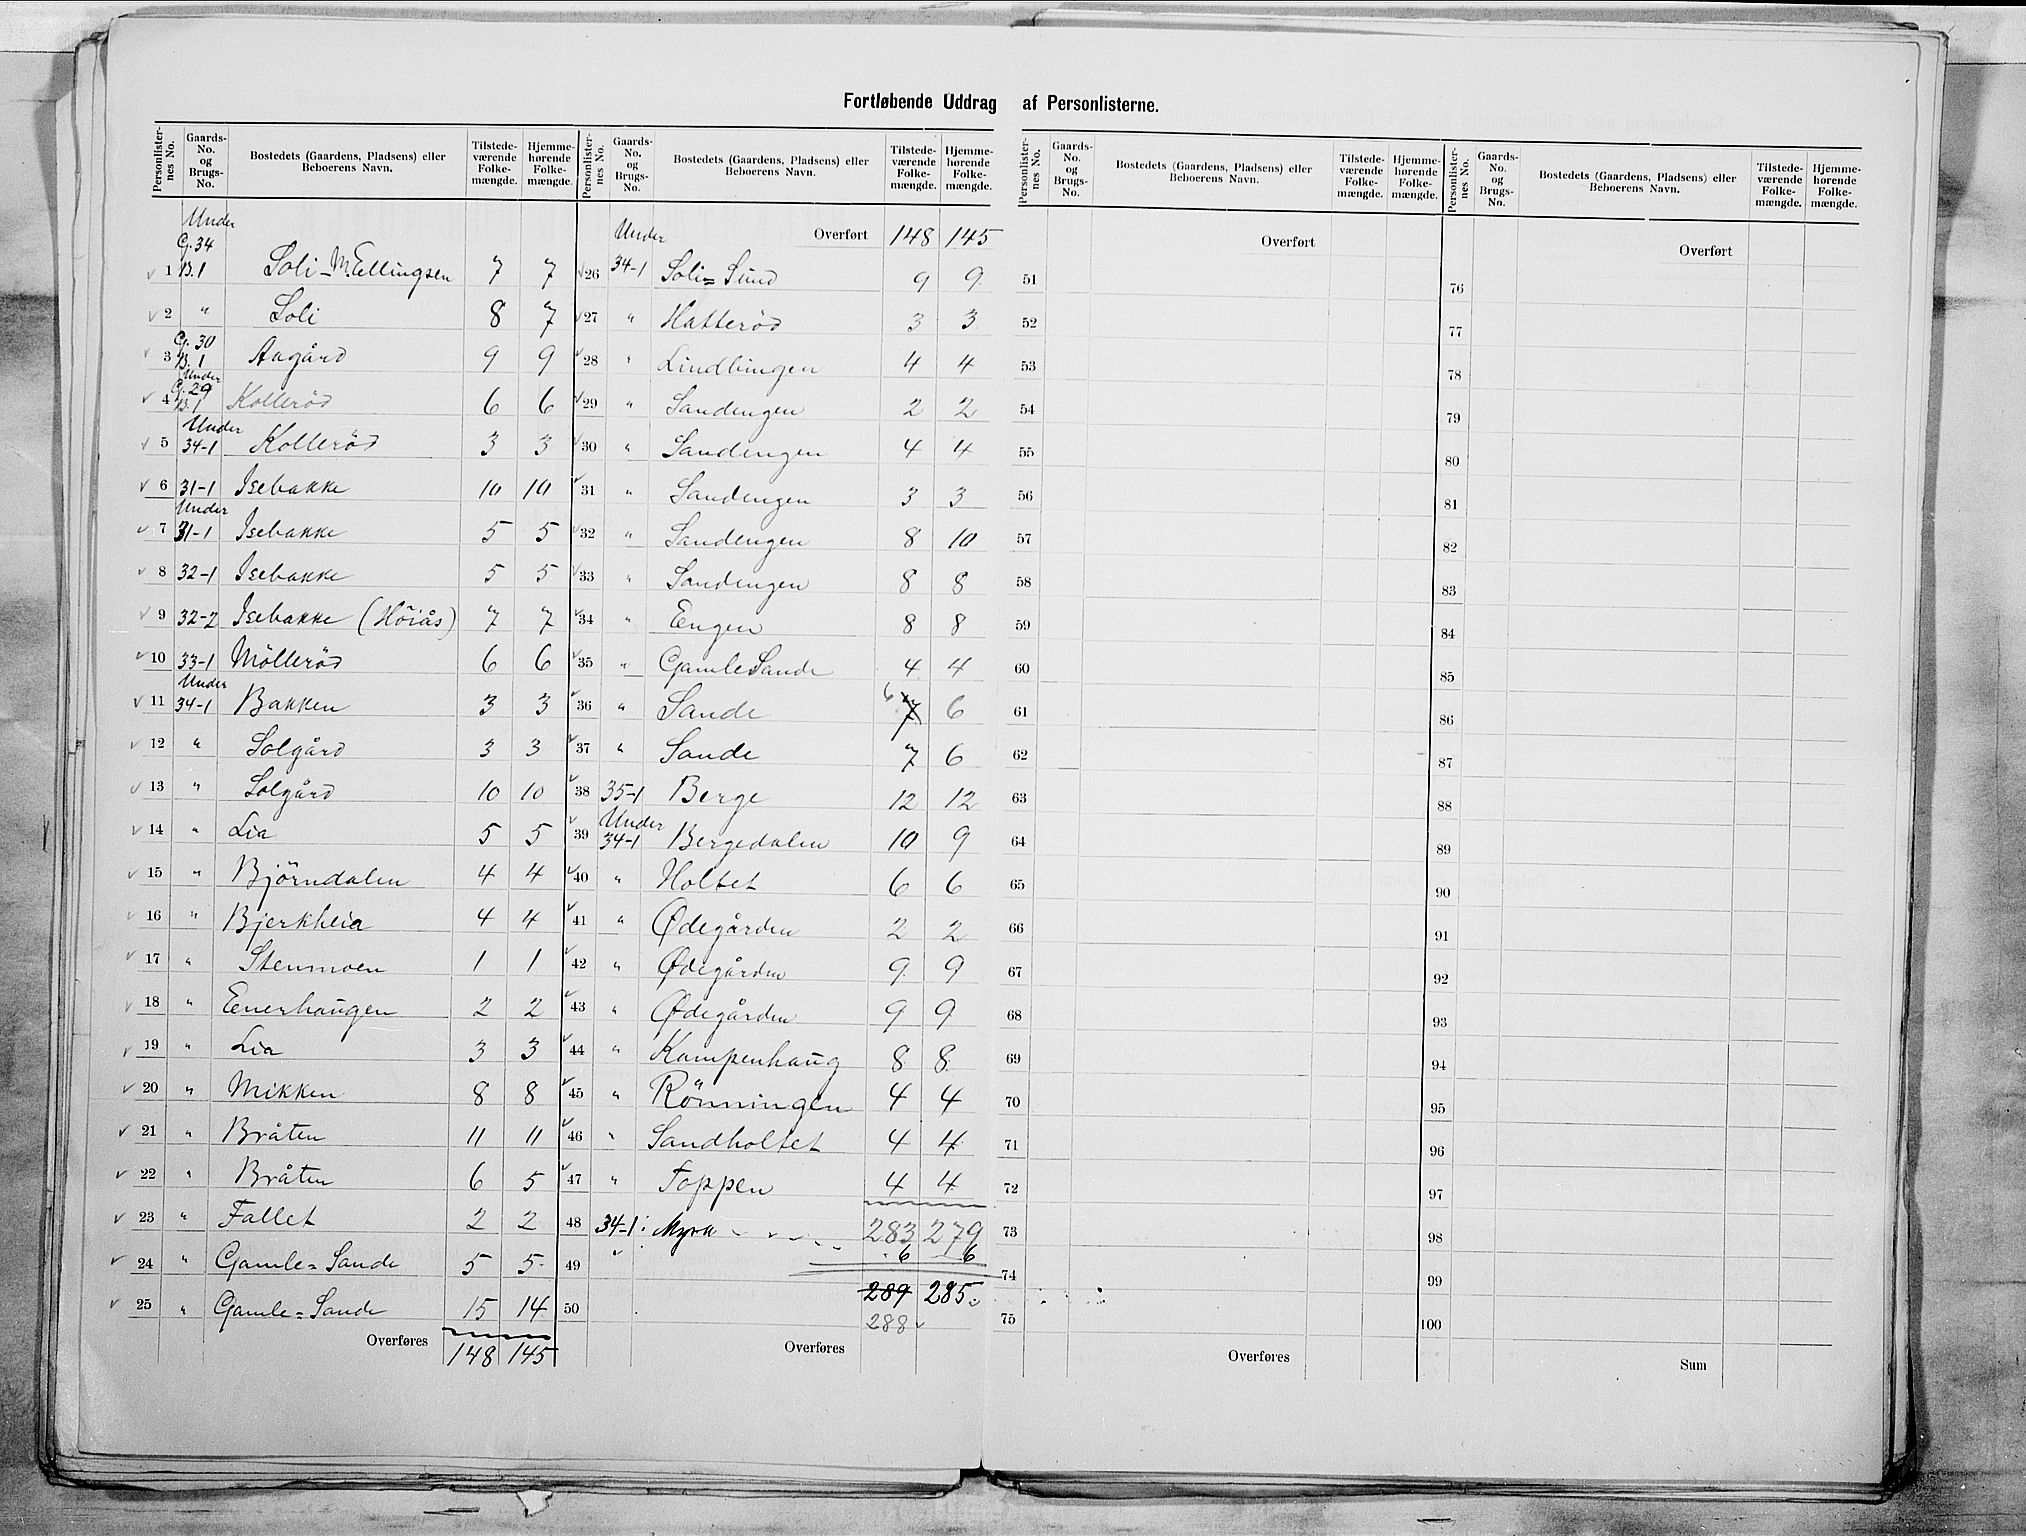 Fortløbende Uddrag af Personlisterne.
Personlister-nes No. Gaards-No. og Brugs-No. Bostedets (Gaardens, Pladsens) eller Beboerens Navn. Tilstede-værende Folke-mængde. Hjemme-hørende Folke-mængde.
Under G. 34
1 B. 1 Soli - M Ellingsen 7 7
2 " Soli 8 7
G. 30
3 B. 1 Aagård 9 9
Under G. 29
4 B. 1 Kollerød 6 6
Under
5 34-1 Kolleröd 3 3
6 31-1 Isebakke 10 10
Under
7 31-1 Isebakke 5 5
8 32-1 Isebakke 5 5
9 32-2 Isebakke (Höiås) 7 7
10 33-1 Mölleröd 6 6
Under
11 34-1 Bakken 3 3
12 " Solgård 3 3
13 " Solgård 10 10
14 " Lia 5 5
15 " Björndalen 4 4
16 " Bjerkheia 4 4
17 " Stenmoen 1 1
18 " Enerhaugen 2 2
19 " Lia 3 3
20 " Mikken 8 8
21 " Bråten 11 11
22 " Bråten 6 5
23 " Fallet 2 2
24 " Gamle=Sande 5 5
25 " Gamle=Sande 15 14
Overføres 148 145
Personlister-nes No. Gaards-No. og Brugs-No. Bostedets (Gaardens, Pladsens) eller Beboerens Navn. Tilstede-værende Folke-mængde. Hjemme-hørende Folke-mængde.
Under Overført 148 145
26 34-1 Soli=Sund 9 9
27 " Hatteröd 3 3
28 " Lindbingen 4 4
29 " Sandengen 2 2
30 " Sandengen 4 4
31 " Sandengen 3 3
32 " Sandengen 8 10
33 " Sandengen 8 8
34 " Engen 8 8
35 " Gamle Sande 4 4
36 " Sande 6 7 6
37 " Sande 7 6
38 35-1 Berge 12 12
Under
39 34-1 Bergedalen 10 9
40 " Holtet 6 6
41 " Ødegården 2 2
42 " Ødegården 9 9
43 " Ødegården 9 9
44 " Kampenhaug 8 8
45 " Rönningen 4 4
46 " Sandholtet 4 4
47 " Toppen 4 4
48 34-1 Myra 283 279
49 " 6 6
289 285
50 288
Overføres
Personlister-nes No. Gaards-No. og Brugs-No. Bostedets (Gaardens, Pladsens) eller Beboerens Navn. Tilstede-værende Folke-mængde. Hjemme-hørende Folke-mængde.
Overført
51
52
53
54
55
56
57
58
59
60
61
62
63
64
65
66
67
68
69
70
71
72
73
74
75
Overføres
Personlister-nes No. Gaards-No. og Brugs-No. Bostedets (Gaardens, Pladsens) eller Beboerens Navn. Tilstede-værende Folke-mængde. Hjemme-hørende Folke-mængde.
Overført
76
77
78
79
80
81
82
83
84
85
86
87
88
89
90
91
92
93
94
95
96
97
98
99
100
Sum